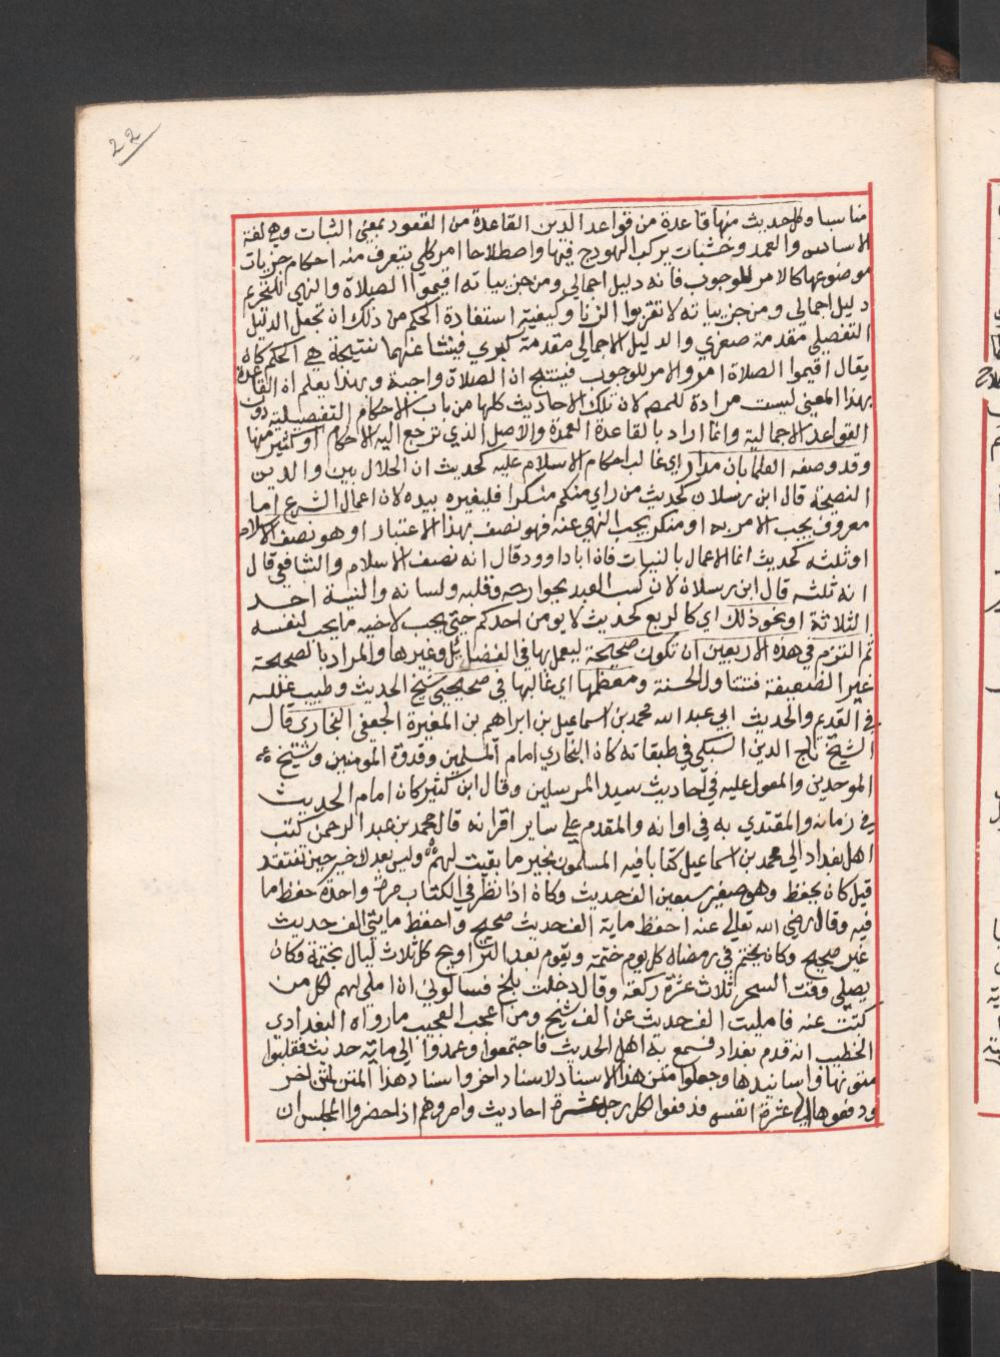 22
مناسبا وكل حديث منها قاعدة من قواعد الدين القاعدة من القعود بمعني الثبات وهي لغة
الاساس والعمد وخشبات يركب الهودج فيها واصطلاحا امر كلي يتعرف منه احكام جزيات
موضوعها كالامر للوجوب فانه دليل اجمالي ومن جزيياته اقيموا الصلاة والنهي للتحريم
دليل اجمالي ومن جزيياته لا تقربوا الزنا وكيفية استفادة الحكم من ذلك ان تجعل الدليل
التفصيلي مقدمة صغري والدليل الاجمالي مقدمة كبري فينشا عنهما نتيجة هي الحكم كان
يقال اقيموا الصلاة امر والامر للوجوب فينتج ان الصلاة واجبة وبهذا يعلم ان القاعدة
بهذا المعني ليست مرادة للمص لان تلك الاحاديث كلها من باب الاحكام التفصيلية دون
القواعد الاجمالية وانما اراد بالقاعدة العمدة والاصل الذي ترجع اليه الاحكام او كثير منها
وقد وصفه العلما بان مدار اي غالب احكام الاسلام عليه كحديث ان الحلال بين والدين
النصيحة قال ابن رسلان كحديث من راي منكم منكرا فليغيره بيده لان اعمال الشرع اما
معروف يجب الامر به او منكر يجب النهي عنه فهو نصف بهذا الاعتبار او هو نصف الاسلام
او ثلثه كحديث انما الاعمال بالنيات فان ابا داوود قال انه نصف الاسلام والشافعي قال
انه ثلثه قال ابن رسلان لان كسب العبد بجوارحه وقلبه ولسانه والنية احد
الثلاثة او نحو ذلك اي كالربع كحديث لا يومن احدكم حتي يحب لاخيه ما يحب لنفسه
ثم التزم في هذه الاربعين ان تكون صحيحة ليعمل بها في الفضايل وغيرها والمراد بالصحيحة
غير الضعيفة فتتناول الحسنة ومعظمها اي غالبها في صحيحي شيخ الحديث وطبيب علله
في القديم والحديث ابي عبد الله محمد بن اسماعيل بن ابراهيم بن المغيرة الجعفي البخاري قال
الشيخ تاج الدين السبكي في طبقاته كان البخاري امام المسلمين وقدوة المومنين وشيخ
الموحدين والمعول عليه في احاديث سيد المرسلين وقال ابن كثير كان امام الحديث
في زمانه والمقتدي به في اوانه والمقدم علي ساير اقرانه قال محمد بن عبد الرحمن كتب
اهل بغداد الي محمد بن اسماعيل كتابا فيه المسلمون بخير ما بقيت لهم وليس بعدك خير حين تفتقد
قيل كان يحفظ وهو صغير سبعين الف حديث وكان اذا نظر في الكتاب مرة واحدة حفظ ما
فيه وقال رضي الله تعالي عنه احفظ ماية الف حديث صحيح واحفظ مايتي الف حديث
غير صحيح وكان يختم في رمضان كل يوم ختمة ويقوم بعد التراويح كل ثلاث ليال بختمة وكان
يصلي وقت السحر ثلاث عشرة ركعة وقال دخلت بلخ فسالوني ان املي لهم لكل من
كتبت عنه فامليت الف حديث عن الف شيخ ومن اعجب العجيب ما رواه البغدادي
الخطيب انه قدم بغداد فسمع به اهل الحديث فاجتمعوا وعمدوا الي ماية حديث فقلبوا
متونها واسانيدها وجعلوا متن هذا الاسناد لاسناد اخر واسناد هذا المتن لمتن اخر
ودفعوها الي عشرة انفس فدفعوا لكل رجل عشرة احاديث وامروهم اذا حضروا المجلس ان